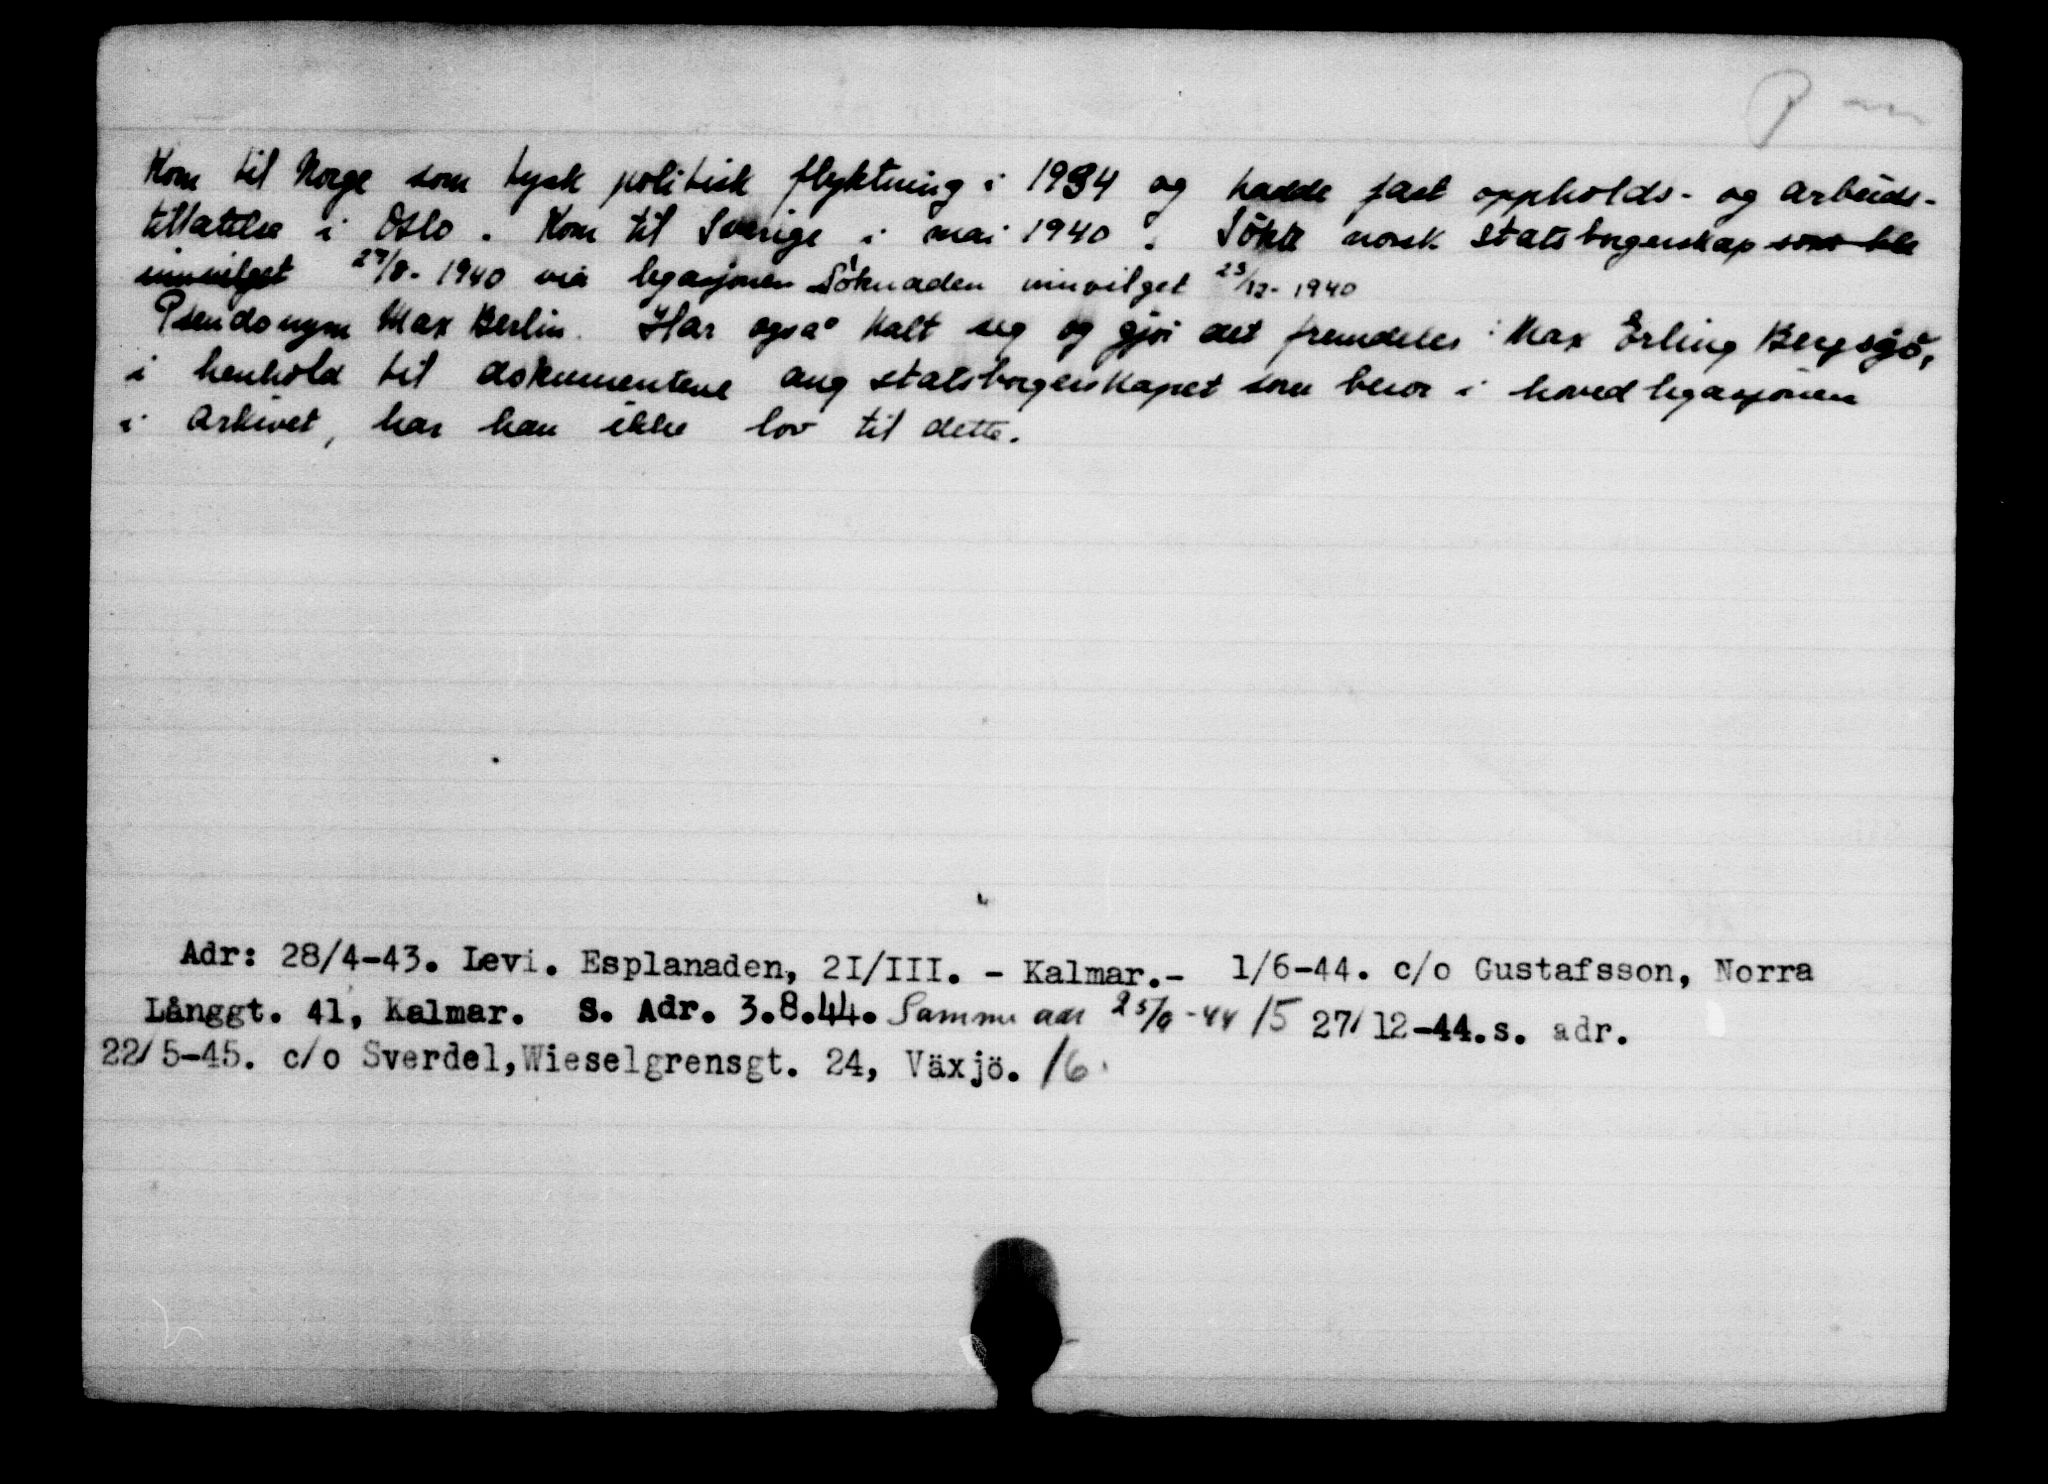 Kom til Norge som tysk politisk flyktning i 1934 og hadde fast oppholds- og arbeids-
tillatelse i Oslo. Kom til Sverige i mai 1940. Sökte norsk statsborgerskap som ble
innvilget 27/8-1940 via legasjonen Söknaden innvilget 23/12-1940
Pseudonym Max Berlin. Har også kalt seg og gjör det fremdeles: Max Erling Bergsjö,
i henhold til dokumentene ang statsborgerskapet som beror i hovedlegasjonen
i arkivet, har han ikke lov til dette.
Adr: 28/4-43. Levi. Esplanaden, 2I/III. - Kalmar.- 1/6-44. c/o Gustafsson, Norra
Långgt. 41, Kalmar. S. Adr. 3.8.44. Samme adr 25/9-44 /5 27/12-44.s. adr.
22/5-45. c/o Sverdel,Wieselgrensgt. 24, Växjö. /6.